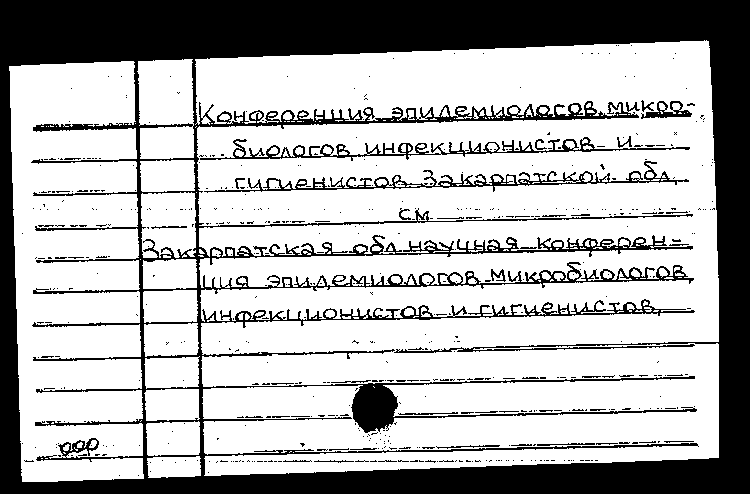 Конференция эпидемиологов, микро-
биологов, инфекционистов и
гигиенистов Закарпатской обл.
см
Закарпатская обл. научная конферен-
ция эпидемиологов, микробиологов,
инфекционистов и гигиенистов.